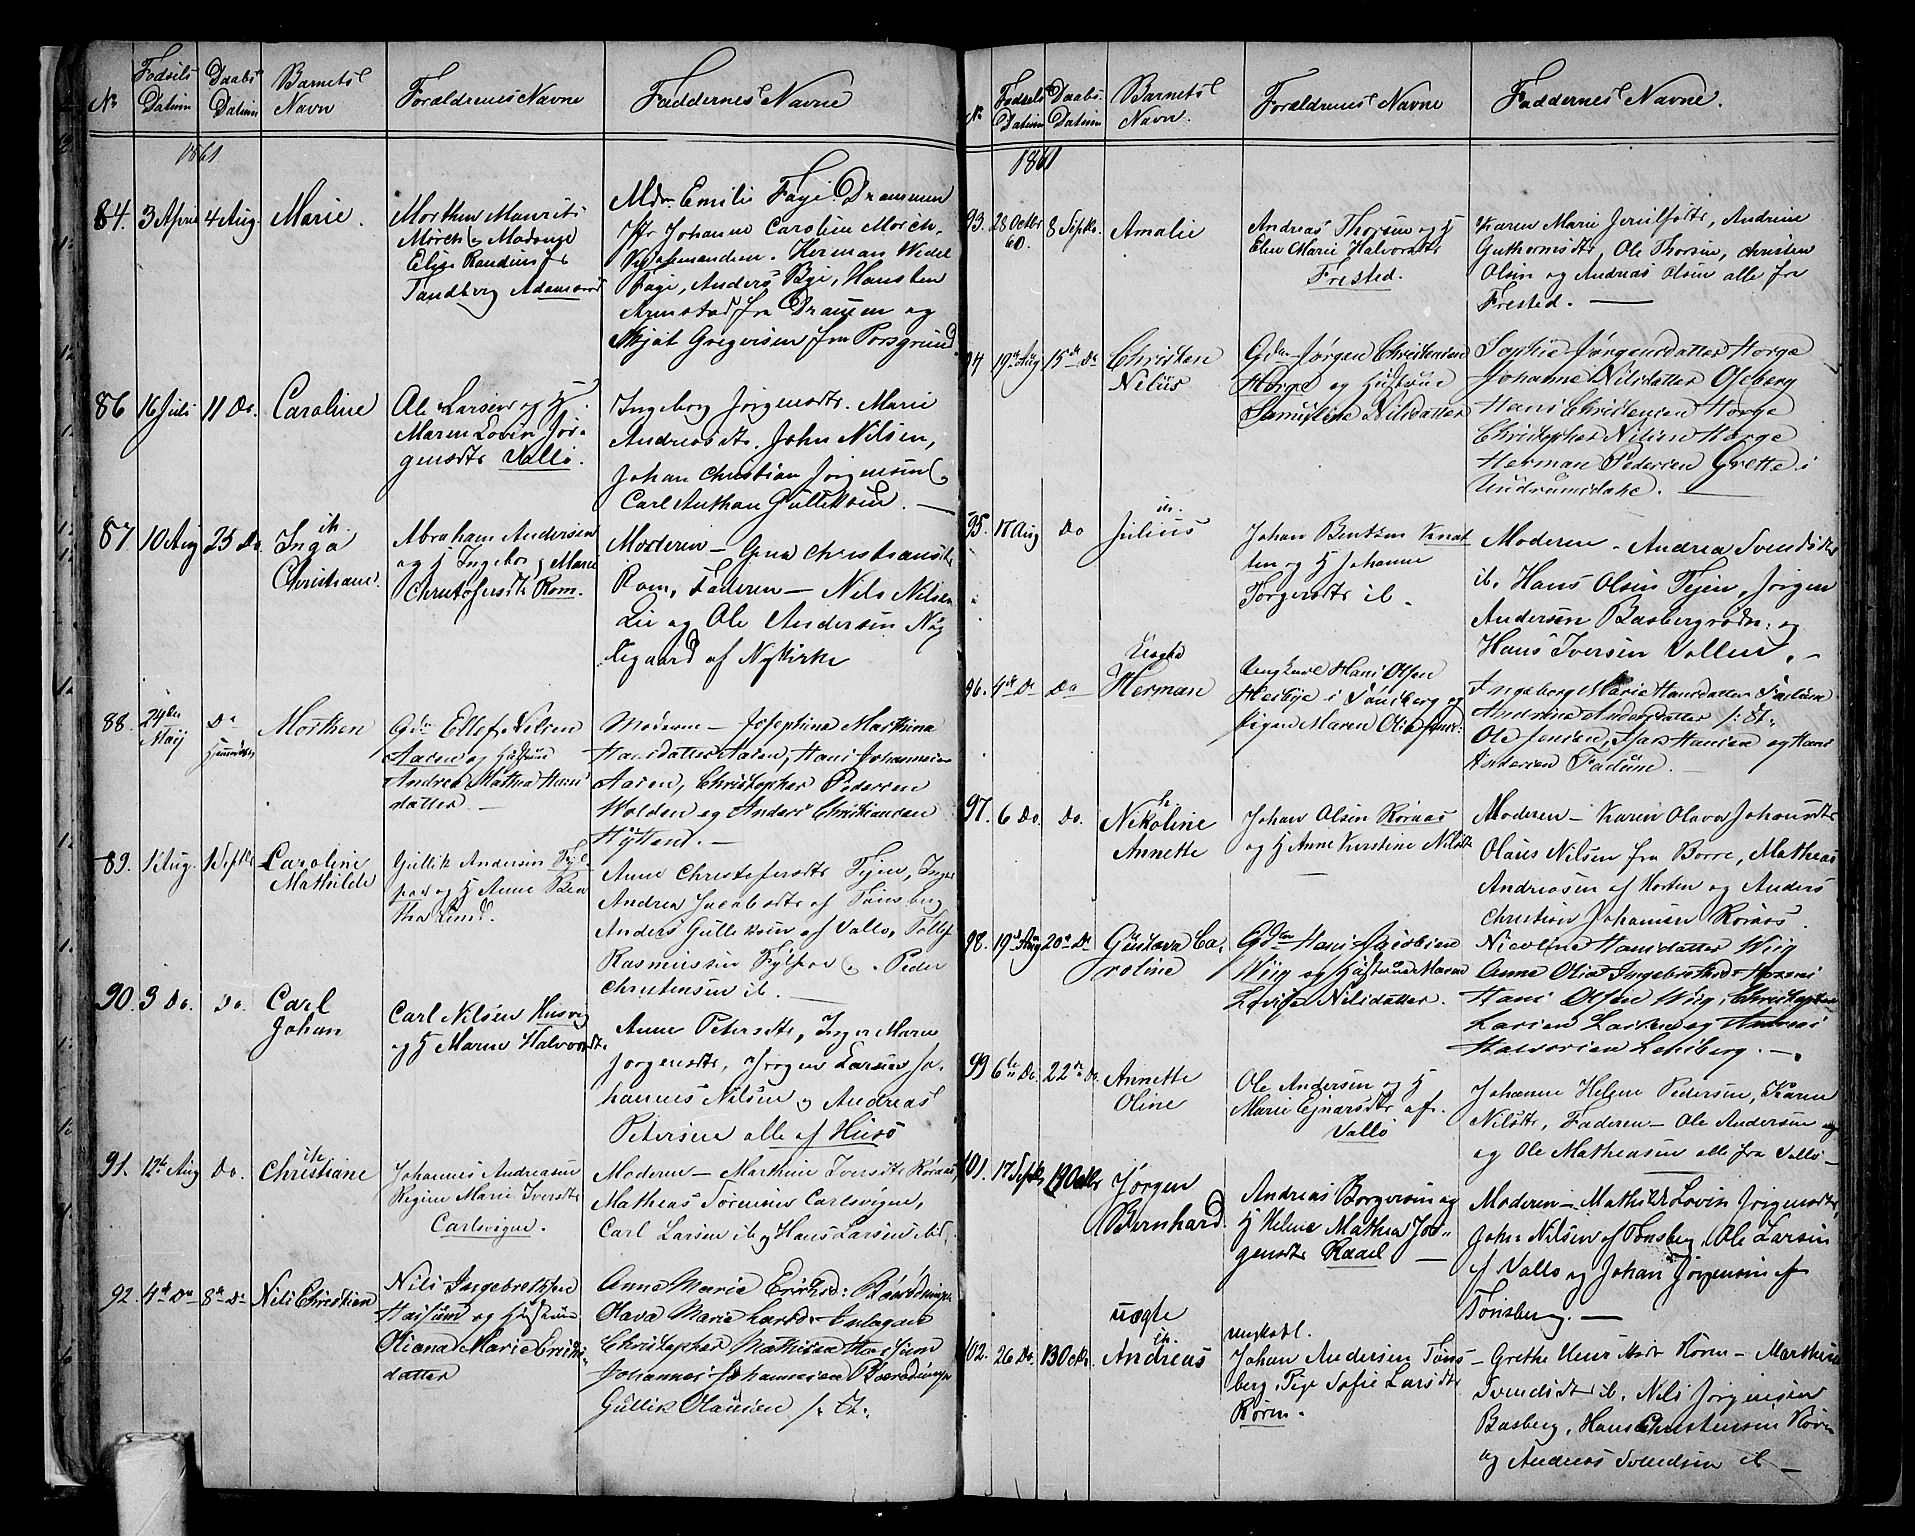 Fødsels Daabs Barnets
No Datum Datum Navn Forældrenes Navne Faddernes Navne
1861
84. 3 April 4 Aug. Marie.
Morthen Maurits
Mørch og Madange
Elise
Tandberg
Mdm Emilie Faye Drammen
Jfr Johanne Caroline Mørch
Herman Wedel
Faye, Anders Bye, Hans
fra Drammen og
Gregersen fra Porsgrund
86 16 Juli 11 Do. Caroline
Ole Larsen og H
Maren Lovise Jør-
gensdtr Vallø.
Ingeborg Jørgensdtr. Marie
Andreasdtr. John Nilsen,
Johan Christian Jørgensen og
Carl Anthon Gulliksen. —
87 10 Aug 25 Do. Inga ib.
Christiane.
Abraham Andersen
og H Ingeborg Marie
Christofersdtr Rom.
Moderen — Christians
Rom, Faderen — Nils Nilsen
Lie og Ole Andersen Nøg
legaard af Nykirke
88. 24de Maij Do Morthen
Gdm Ellef Nilsen
Aasen og Hustrue
Andrea Mathea Hans
datter —
Moderen — Josephine Marthina
Hansdatter Aasen, Hans Johannesen
Aasen, Christopher Pedersen
Wolden og Anders Christiansen
Hytland. —
89. 1 Aug. 1 Septbr Caroline
Mathilde
Gullik Andersen Fyl-
pas og H Anne Bea
tha Lund.
Anne Christofersdtr Fejen, Inger
Andrea Jacobsdtr af Tønsberg
Anders Gulliksen af Vallø, Tollef
Rasmussen Fylpas og Peder
Christensen ib. —
90. 3 Do. Do. Carl
Johan
Carl Nilsen Husvig
og H Maren Halvorsdtr.
Anne Petersdtr, Inger Maria
Jørgensdtr, Jørgen Larsen Jo-
hannes Nilsen og Andreas
Petersen alle af Husø
91. 12te Aug Do. Christiane ib
Johannes Andreasen
Regine Marie Iversdtr
Carlsvigen.
Moderen — Marthine Iversdtr Røraas,
Mathias Sørensen Carlsvigen,
Carl Larsen ib og Hans Larsen ibd.
92. 4de Do 8de Do Nils Christian
Nils Ingebrethsen
Hassum og Hustrue
Oliana Marie Erichs-
datter
Anna Marie Erichsd:
Olava Marie Larsd.
Christopher Mathisen Hassum
Johannes Johannesen
Gullik Olausen /: Et:
Fødsels Daabs. Barnets
No Datum Datum Navn. Forældrenes Navne Faddernes Navne.
1861
93. 28 Octbr 60. 8 Septbr. Amalie
Andreas Thorsen og H
Elen Marie Halvorsdtr
Frested.
Karen Marie, Andrine
Guthormsdtr, Ole Thorsen, Christen
Olsen og Andreas Olsen alle fra
Frested. —
94 19de Aug 15de Do Christen
Nilius
Gdm Jørgen Christensen
Horge og Hustrue
Samueline Nilsdatter
Sophie Jørgensdatter Horge
Johanne Nilsdatter Oseberg
Hans Christensen Horge
Christopher Nilsen Horge
Herman Pedersen Grette i
Undrumsdahl. —
95. 17 Aug Do Julius ib.
Johan Bentsen Knat
ten og H Johanne
Torgersdtr ib.
Moderen — Andrea Svendsdtr
ib. Hans Olsen Fejen, Jørgen
Andersen Basbergrødn: og
Hans Iversen Vallen. —
96. 4de Do Do Uægte
Herman
Ungkarl Hans Olsen
Heibye i Tønsberg og
Pigen Maren Olia
Ingeborg Marie Hansdatter Fadum
Andrine Andersdatter /: Et:
Ole Jensen, Hansen og Hans
Andersen Fadum. —
97. 6 Do. Do. Nikoline
Annette
Johan Olsen Røraas
og H Anne Kirstine Nilsdtr
—
Moderen — Karen Olava Johansdtr
Olaus Nilsen fra Borre, Mathias
Andreasen af Horten og Anders
Christian Johansen Røraas.
98. 19de Aug 20de Do Gustava Ca-
roline
Gdm Hans Jacobsen
Wiig og Hustrue Maren
Lovise Nilsdatter.
Nicoline Hansdatter Wiig
Anne Olia Ingebrethsd.
Hans Olsen Wiig, Christopher
Larsen og Andreas
Halvorsen —.
99 6te Do. 22de Do. Annette
Oline
Ole Andersen og H
Marie Ejnarsdtr af.
Vallø
Johanne Helene Pedersen, Karen
Nilsdtr, Faderen — Ole Andersen og
og Ole Mathiasen alle fra Vallø —
101. 17 Septbr 13 Octbr Jørgen
Bernhard.
Andreas Borgersen og
H Helene Mathea Jør-
gensdtr Raael —
Moderen — Mathilde Lovise Jørgensdtr,
John Nilsen af Tønsberg, Ole Larsen
af Vallø og Johan Jørgensen af
Tønsberg. —
102. 26 Do. 13 Octbr uægte
Andreas ib.
ungkarl.
Johan Andersen Tøns-
berg, Pige Sofie Larsdtr
Røren.
Grethe Røren — Marthea
Svendsdtr ib. Nils Jørgensen
Basberg, Hans Christensen Røren
og Andreas Svendsen ib —